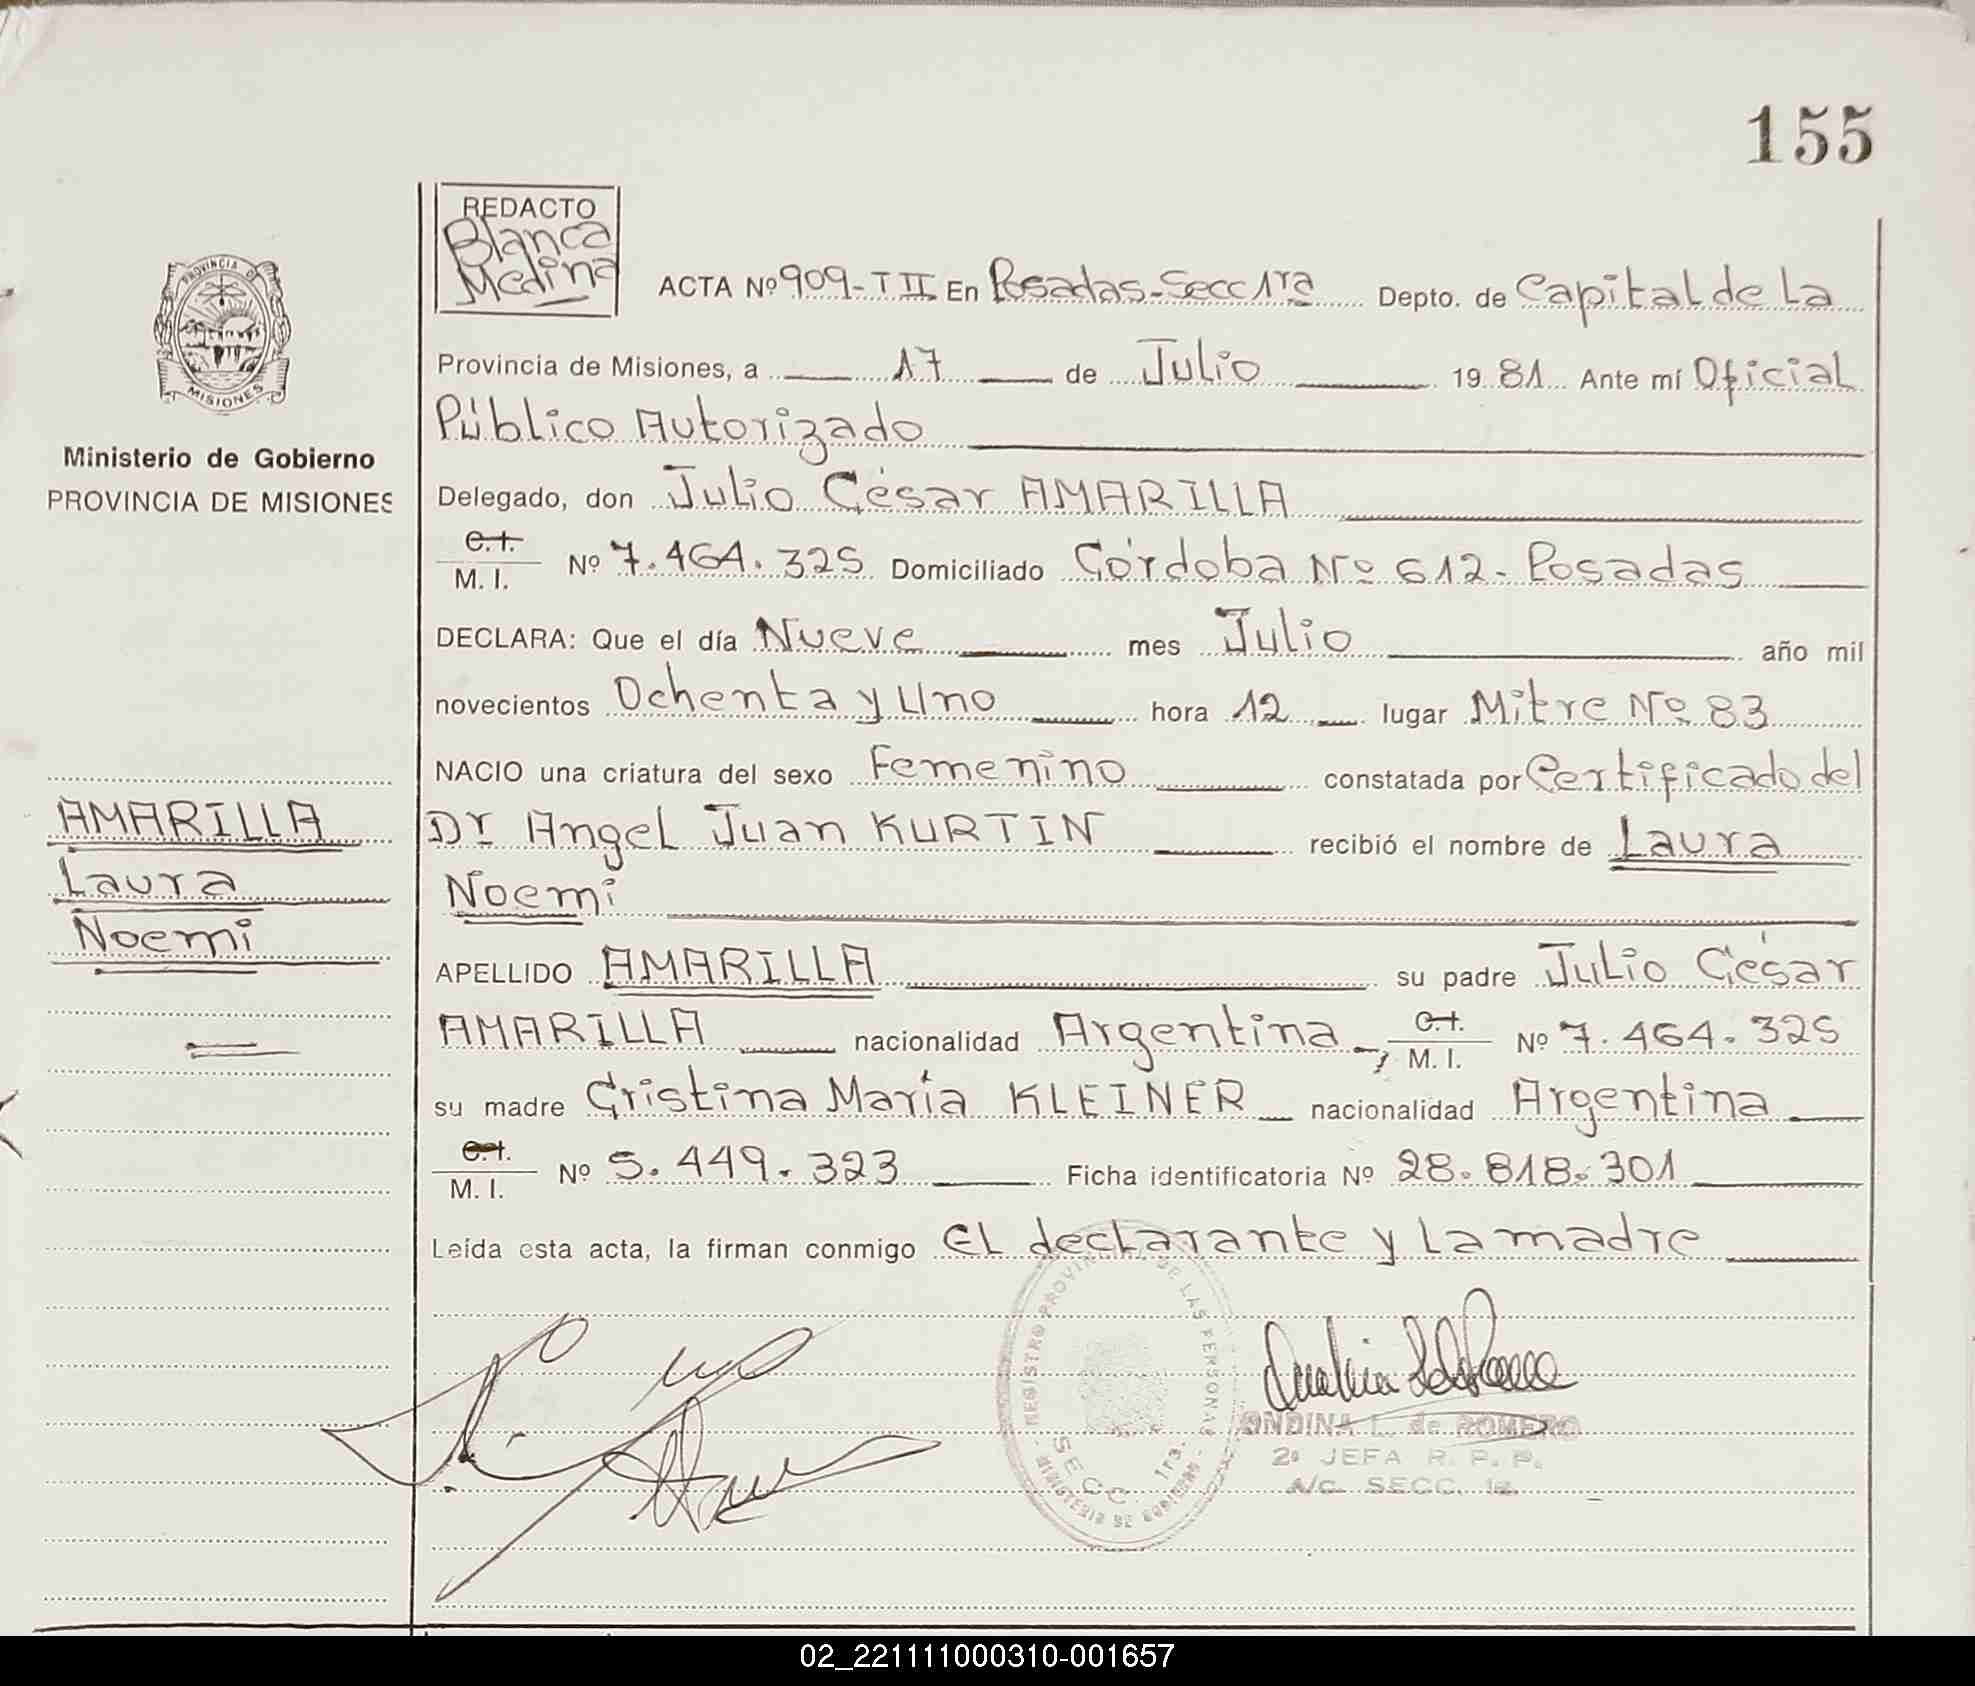 155
REDACTO
Blanca
Medina
ACTA Nº 909-T II En Posadas-Secc 1ra Depto. de Capital de La
Provincia de Misiones, a 17 de Julio 19 81 Ante mí Oficial
Público Autorizado
Delegado, don Julio César AMARILLA
C.I.
M. I. Nº 7.464.325 Domiciliado Córdoba Nº 612- Posadas
DECLARA: Que el día Nueve mes Julio año mil
novecientos Ochenta y Uno hora 12 lugar Mitre Nº 83
NACIO una criatura del sexo Femenino constatada por Certificado del
Dr Angel Juan KURTIN recibió el nombre de Laura
Noemi
APELLIDO AMARILLA su padre Julio César
AMARILLA nacionalidad Argentina, C.I. M. I. Nº 7.464.325
su madre Cristina María KLEINER nacionalidad Argentina
C.I.
M. I. Nº 5.449.323 Ficha identificatoria Nº 28.818.301
Leída esta acta, la firman conmigo EL declarante y La madre
PROVINCIA DE
MISIONES
Ministerio de Gobierno
PROVINCIA DE MISIONES
AMARILLA
Laura
Noemi
REGISTRO PROVINCIAL DE LAS PERSONAS
SECC. 1ra.
MINISTERIO DE GOBIERNO
ONDINA L. de ROMERO
2º JEFA R. P. P.
A/C. SECC. 1a.
02_221111000310-001657